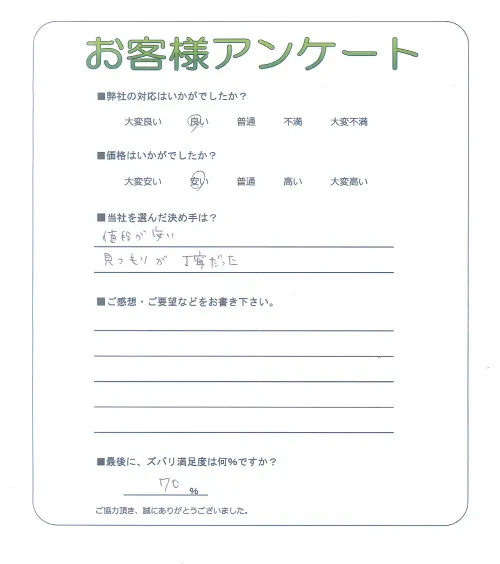 お客様アンケート
■弊社の対応はいかがでしたか？
大変良い 良い 普通 不満 大変不満
■価格はいかがでしたか？
大変安い 安い 普通 高い 大変高い
■当社を選んだ決め手は？
値段が安い
見つもりが丁寧だった
■ご感想・ご要望などをお書き下さい。
■最後に、ズバリ満足度は何%ですか？
70 %
ご協力頂き、誠にありがとうございました。